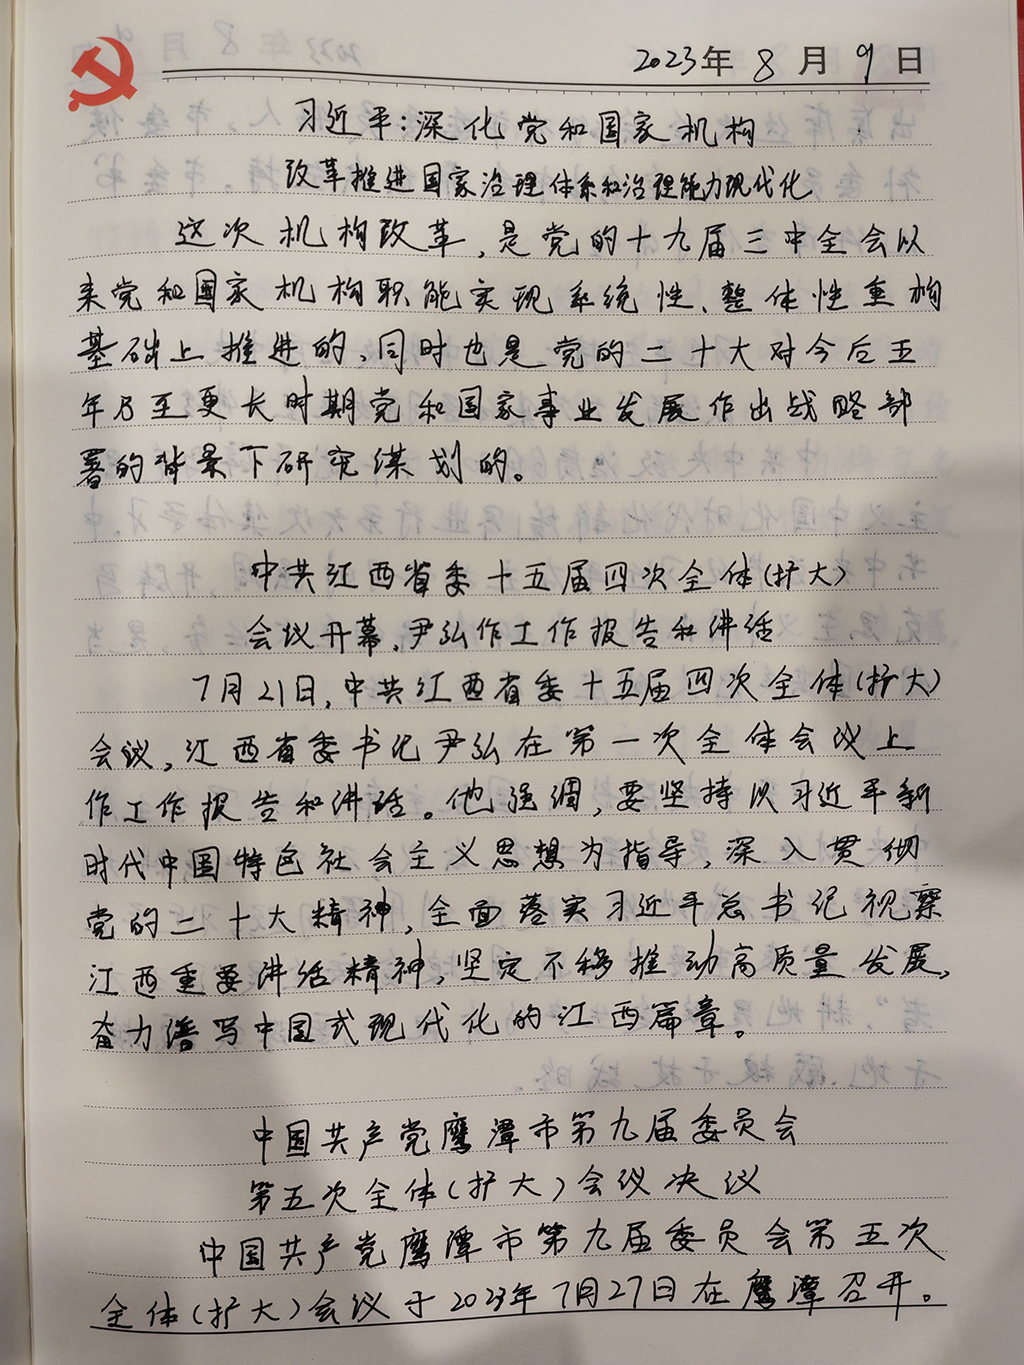 2023年8月9日
习近平:深化党和国家机构
改革推进国家治理体系和治理能力现代化
这次机构改革,是党的十九届三中全会以
来党和国家机构职能实现系统性、整体性重构
基础上推进的、同时也是党的二十大对今后五
年乃至更长时期党和国家事业发展作出战略部
署的背景下研究谋划的。
中共江西省委十五届四次全体(扩大)
会议开幕,尹弘作工作报告和讲话
7月21日,中共江西省委十五届四次全体(扩大)
会议,江西省委书记尹弘在第一次全体会议上
作工作报告和讲话。他强调,要坚持以习近平新
时代中国特色社会主义思想为指导,深入贯彻
党的二十大精神,全面落实习近平总书记视察
江西重要讲话精神,坚定不移推动高质量发展,
奋力谱写中国式现代化的江西篇章。
中国共产党鹰潭市第九届委员会
第五次全体(扩大)会议决议
中国共产党鹰潭市第九届委员会第五次
全体(扩大)会议于2023年7月27日在鹰潭召开。